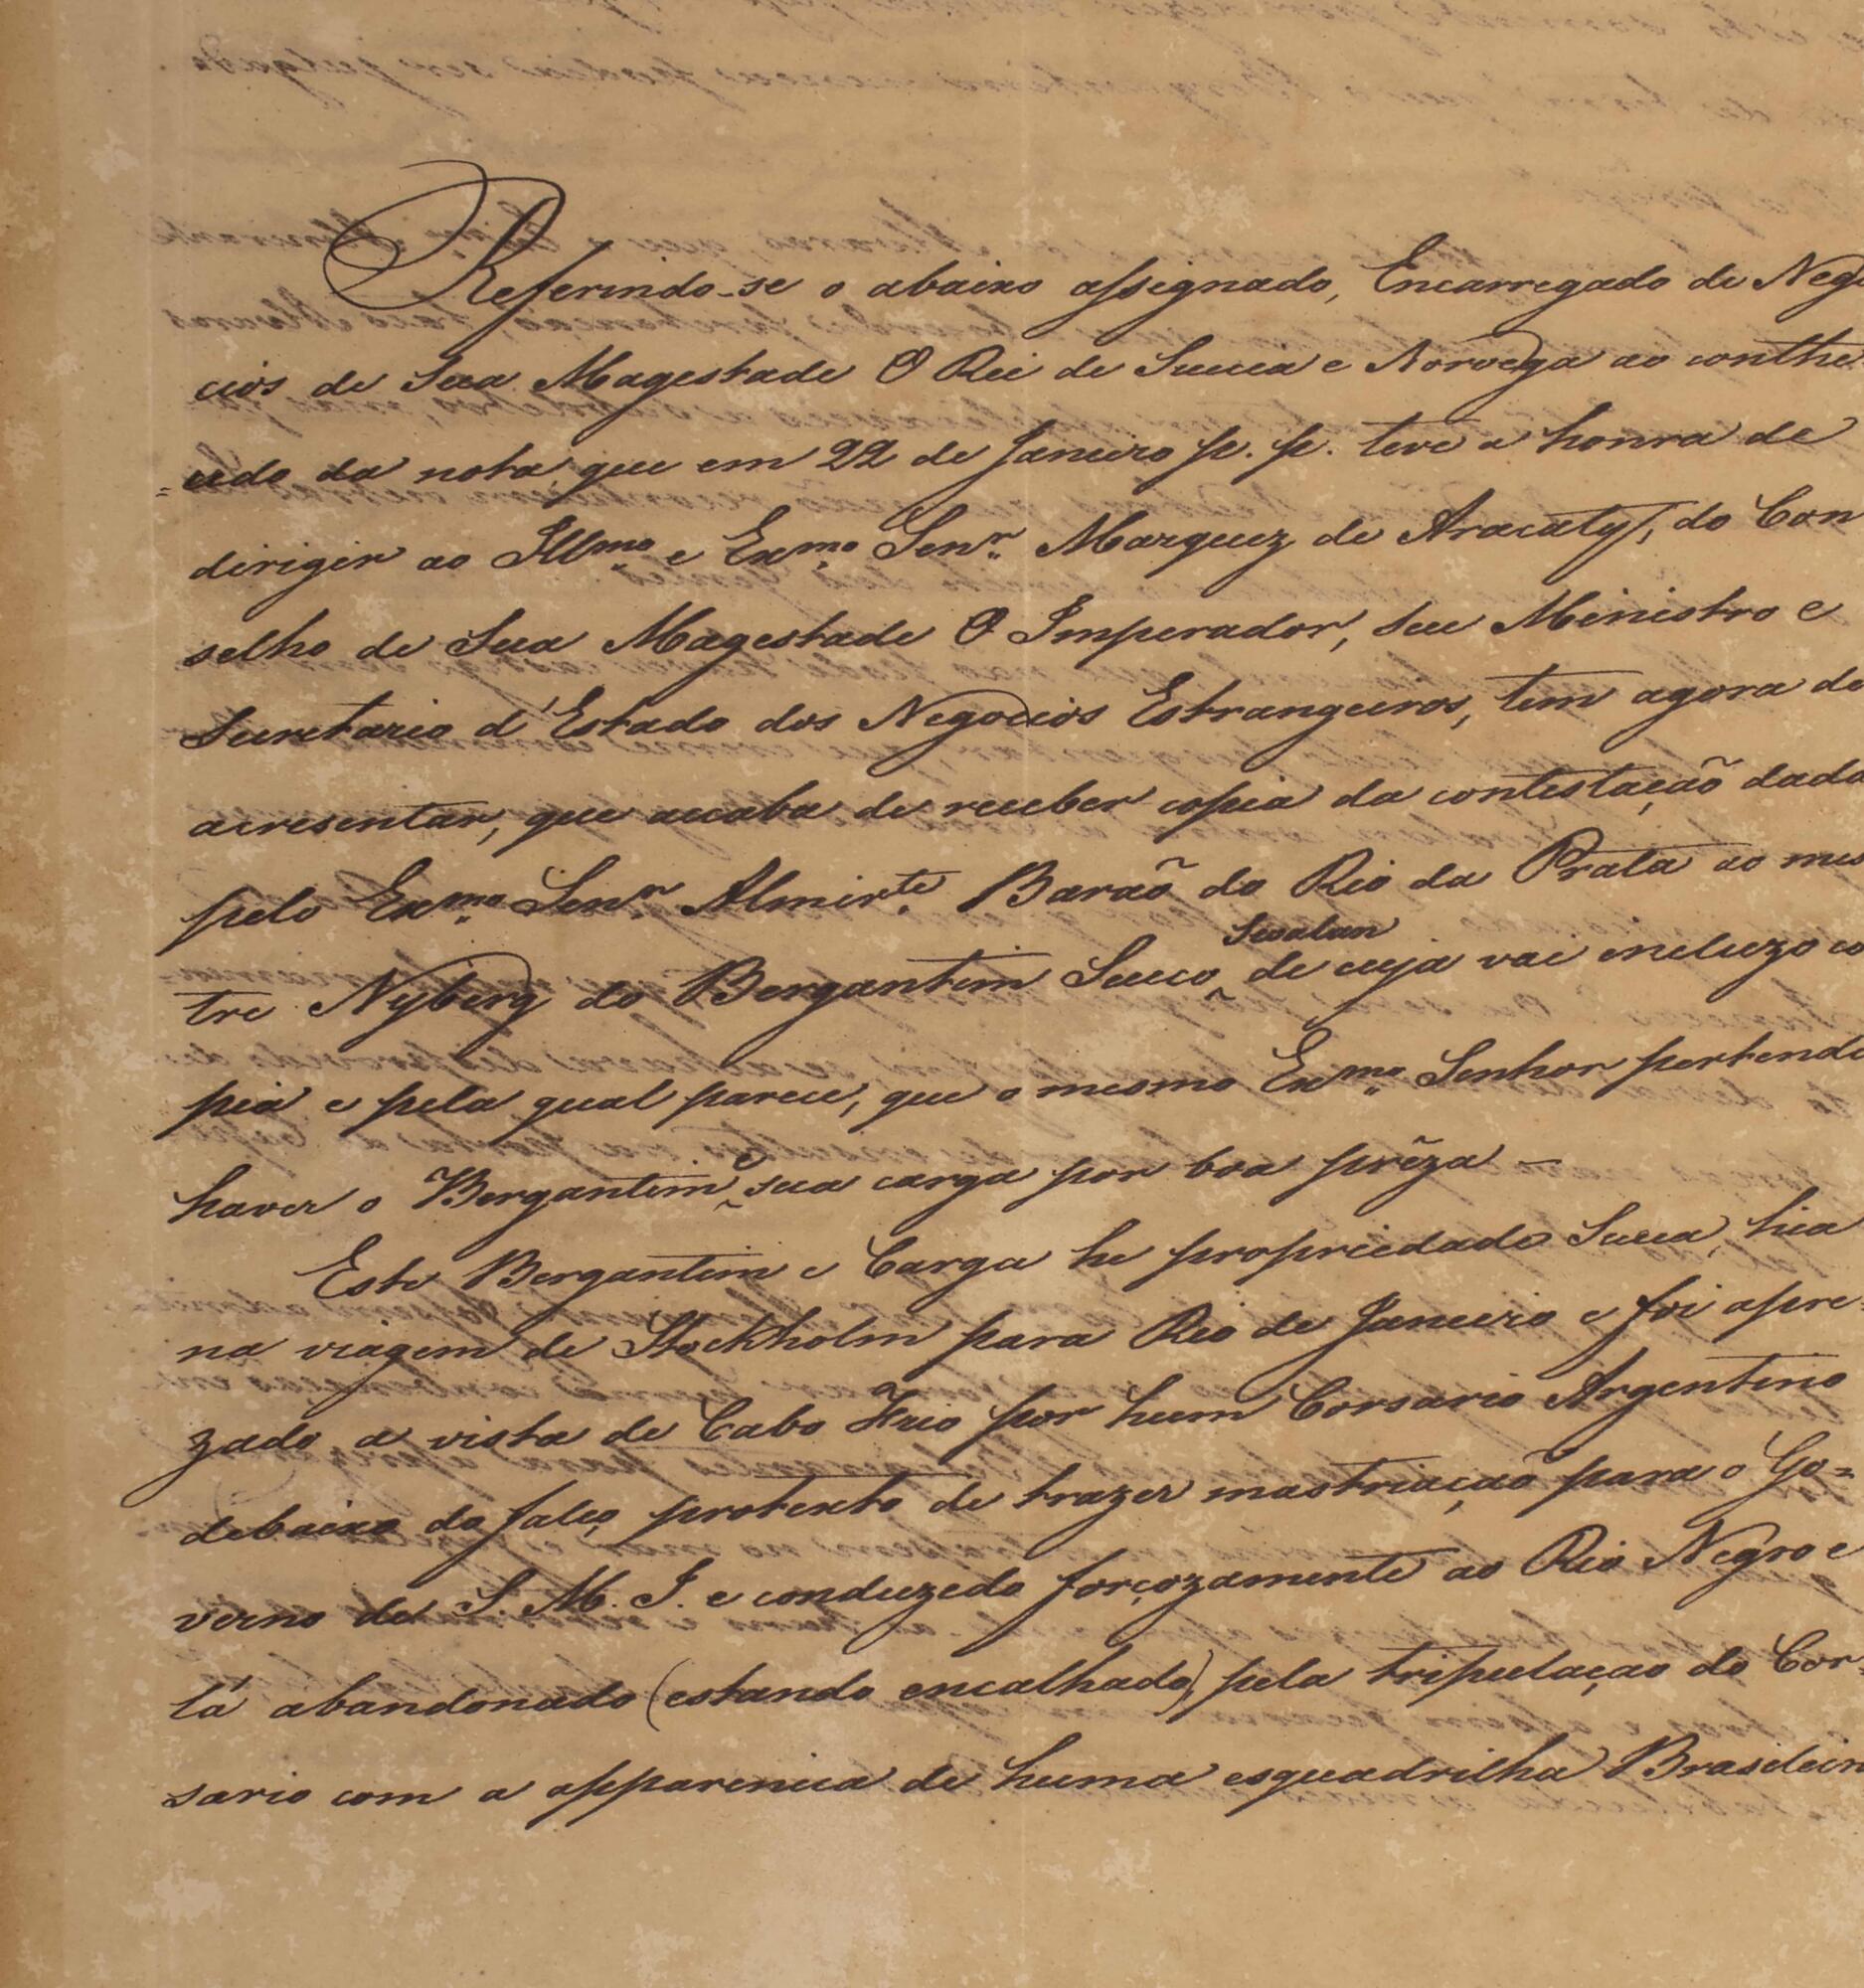 Referindo-se o abaixo assignado, Encarregado de Nego
cios de Sua Magestade O Rei de Suecia e Norvega ao conthe
=udo da nota, que em 22 de Janeiro p. p. teve a honra de
dirigir ao Illmo e Exmo Senr Marquez de Aracaty, do Con
selho de Sua Magestade O Imperador, seu Ministro e
Secretario d'Estado dos Negocios Estrangeiros, tem agora de
acresentar, que acaba de receber copia da contestação dada
pelo Exmo Senr Almirte Barão do Rio da Prata ao mes
Swalan
tre Nyberg do Bergantim Sueco de cuja vai incluzo co
pia e pela qual parece, que o mesmo Exmo Senhor pertende
haver o Bergantim e sua carga por boa prêza —
Este Bergantim e Carga he propriedade Sueca, hia
na viagem de Stockholm para Rio de Janeiro e foi apre
zado a vista de Cabo Frio por hum Corsario Argentino
debaixo do falço protexto de trazer mastriação para o Go=
verno de S. M. I. e conduzedo forçozamente ao Rio Negro e
lá abandonado (estando encalhado) pela tripulaçao do Cor
sario com a apparencia de huma esquadrilha Brasileir